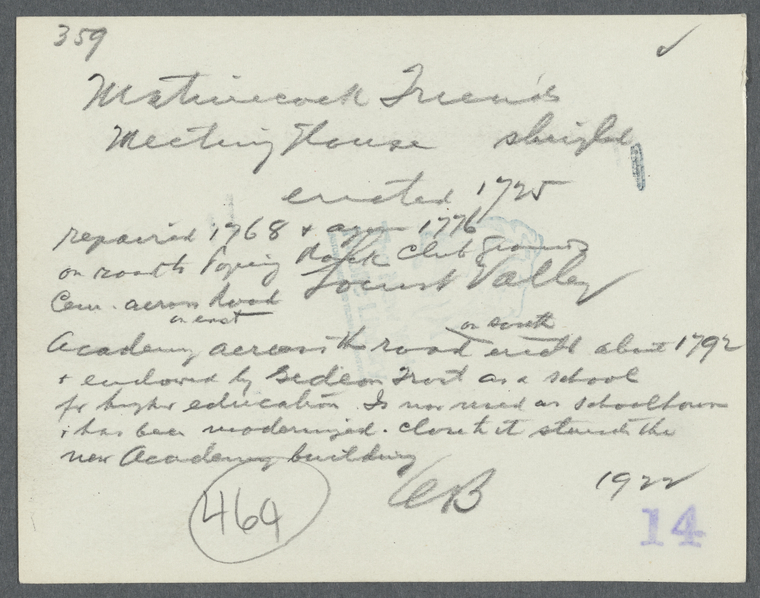 359 ✓
Matinecock Friends
Meeting House shingled
erected 1725
repaired 1768 + again 1776
on road to Piping Rock Club grounds
Locust Valley
Cem. across road
on east
on south
Academy across the road erectd about 1792
+ endowed by Gideon Frost as a school
for higher education. Is now used as school
+ has been modernized. Close to it stands the
new Academy building
1922
464
14